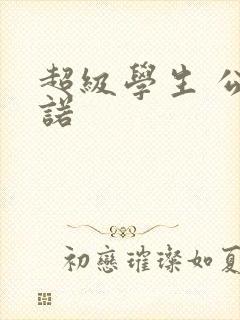 超級學生 公
諾
初戀璀璨如夏